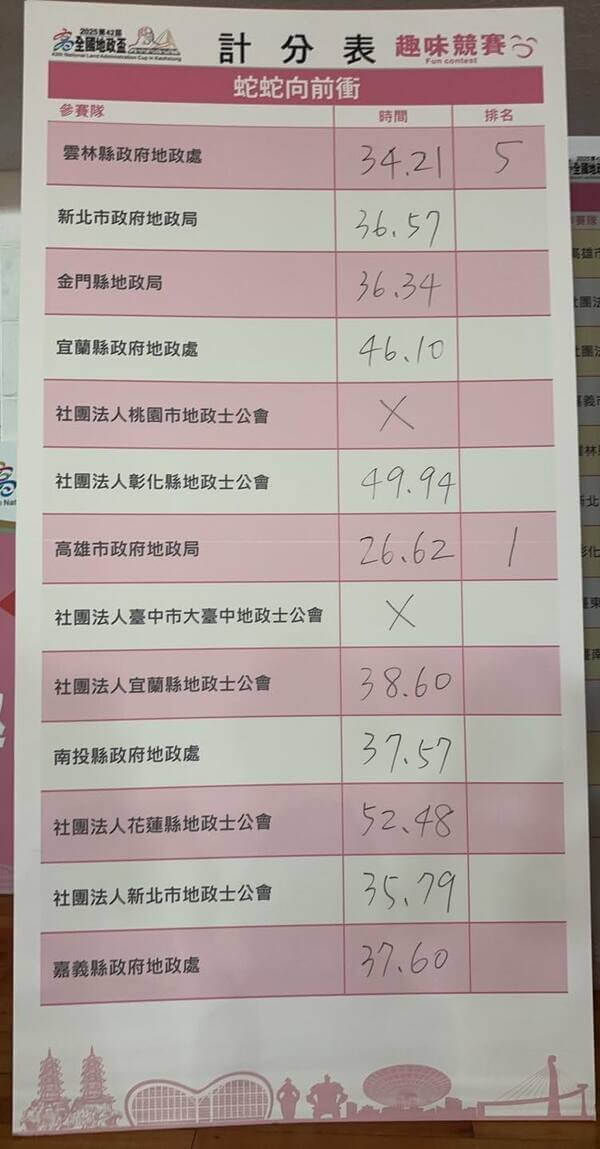 2025第42屆
全國地政盃
42th National Land Administration Cup in Kaohsiung
計分表 趣味競賽
Fun contest
蛇蛇向前衝
參賽隊 時間 排名
雲林縣政府地政處 34.21 5
新北市政府地政局 36.57
金門縣地政局 36.34
宜蘭縣政府地政處 46.10
社團法人桃園市地政士公會 X
社團法人彰化縣地政士公會 49.94
高雄市政府地政局 26.62 1
社團法人臺中市大臺中地政士公會 X
社團法人宜蘭縣地政士公會 38.60
南投縣政府地政處 37.57
社團法人花蓮縣地政士公會 52.48
社團法人新北市地政士公會 35.79
嘉義縣政府地政處 37.60